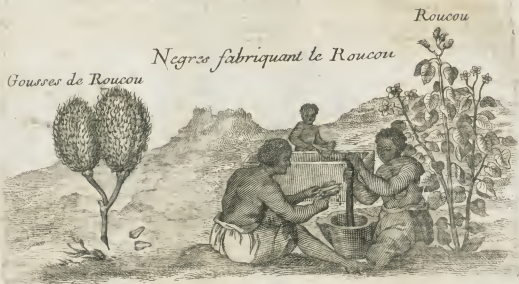 Roucou
Negres fabriquant le Roucou
Gousses de Roucou